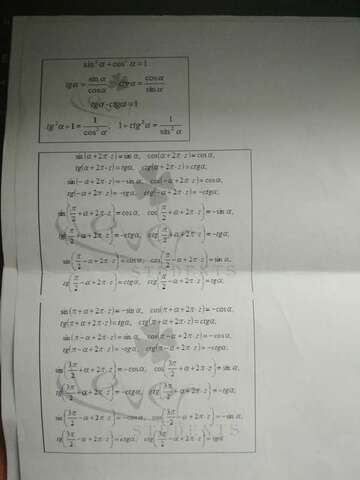 sin²α+cos²α=1
tgα=sinα/cosα ctgα=cosα/sinα
tgα·ctgα=1
tg²α+1=1/cos²α, 1+ctg²α=1/sin²α
sin(α+2π·z)=sinα, cos(α+2π·z)=cosα,
tg(α+2π·z)=tgα, ctg(α+2π·z)=ctgα,
sin(-α+2π·z)=-sinα, cos(-α+2π·z)=cosα,
tg(-α+2π·z)=-tgα, ctg(-α+2π·z)=-ctgα,
sin(π/2+α+2π·z)=cosα, cos(π/2+α+2π·z)=-sinα,
tg(π/2+α+2π·z)=-ctgα, ctg(π/2+α+2π·z)=-tgα,
sin(π/2-α+2π·z)=cosα, cos(π/2-α+2π·z)=sinα,
STUDENTS
tg(π/2-α+2π·z)=ctgα, ctg(π/2-α+2π·z)=tgα,
sin(π+α+2π·z)=-sinα, cos(π+α+2π·z)=-cosα,
tg(π+α+2π·z)=tgα, ctg(π+α+2π·z)=ctgα,
sin(π-α+2π·z)=sinα, cos(π-α+2π·z)=-cosα,
tg(π-α+2π·z)=-tgα, ctg(π-α+2π·z)=-ctgα,
sin(3π/2+α+2π·z)=-cosα, cos(3π/2+α+2π·z)=sinα,
tg(3π/2+α+2π·z)=-ctgα, ctg(3π/2+α+2π·z)=-tgα,
sin(3π/2-α+2π·z)=-cosα, cos(3π/2-α+2π·z)=-sinα,
STUDENTS
tg(3π/2-α+2π·z)=ctgα, ctg(3π/2-α+2π·z)=tgα